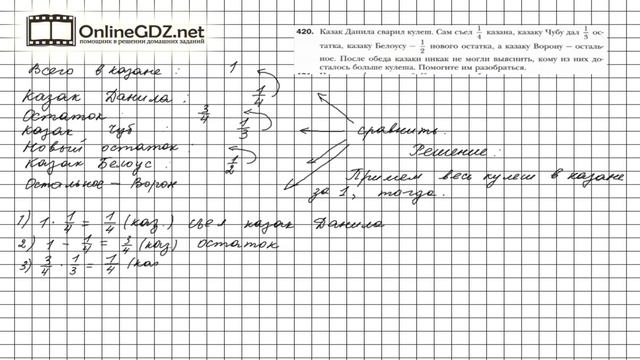 OnlineGDZ.net
помощник в решении домашних заданий
420. Казак Данила сварил кулеш. Сам съел 1/4 казана, казаку Чубу дал 1/3 ос-
татка, казаку Белоусу — 1/2 нового остатка, а казаку Ворону — осталь-
ное. После обеда казаки никак не могли выяснить, кому из них до-
сталось больше кулеша. Помогите им разобраться.
Всего в казане : 1
Казак Данила : 1/4
Остаток 3/4
Казак Чуб 1/3
Новый остаток :
Казак Белоус : 1/2
Остальное — Ворон
сравнить.
Решение :
Примем весь кулеш в казане
за 1, тогда.
1) 1 · 1/4 = 1/4 (каз.) съел казак Данила
2) 1 - 1/4 = 3/4 (каз) остаток
3) 3/4 · 1/3 = 1/4 (каз